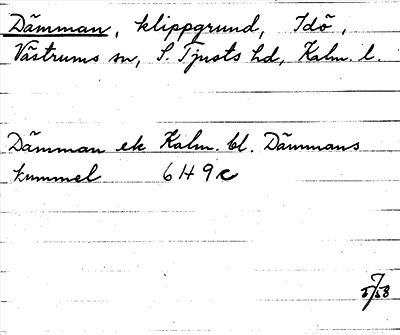 Dämman, klippgrund, Idö,
Västrums sn, S. Tjusts hd, Kalm. l.
Dämman ek Kalm. bl. Dämmans
kummel 6H9c